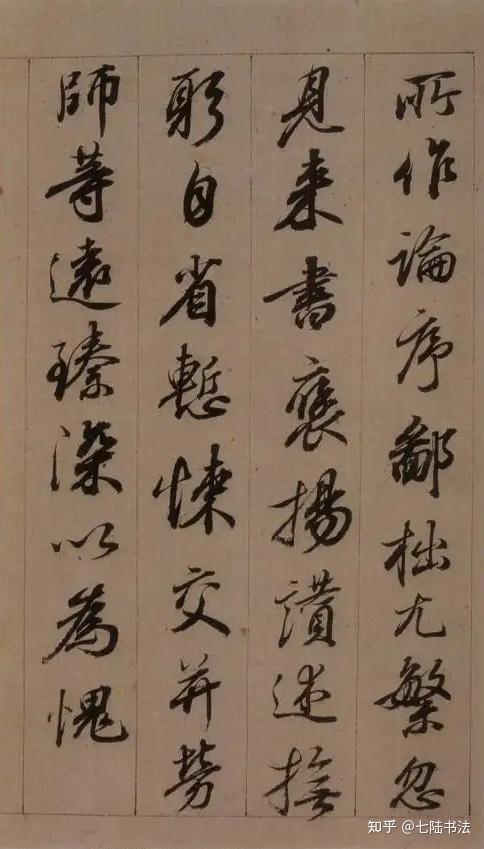 所作論序鄙拙尤繁忽
見来書褒揚讃述撫
躬自省慙悚交并勞
師等遠臻深以為愧
知乎 @七陆书法